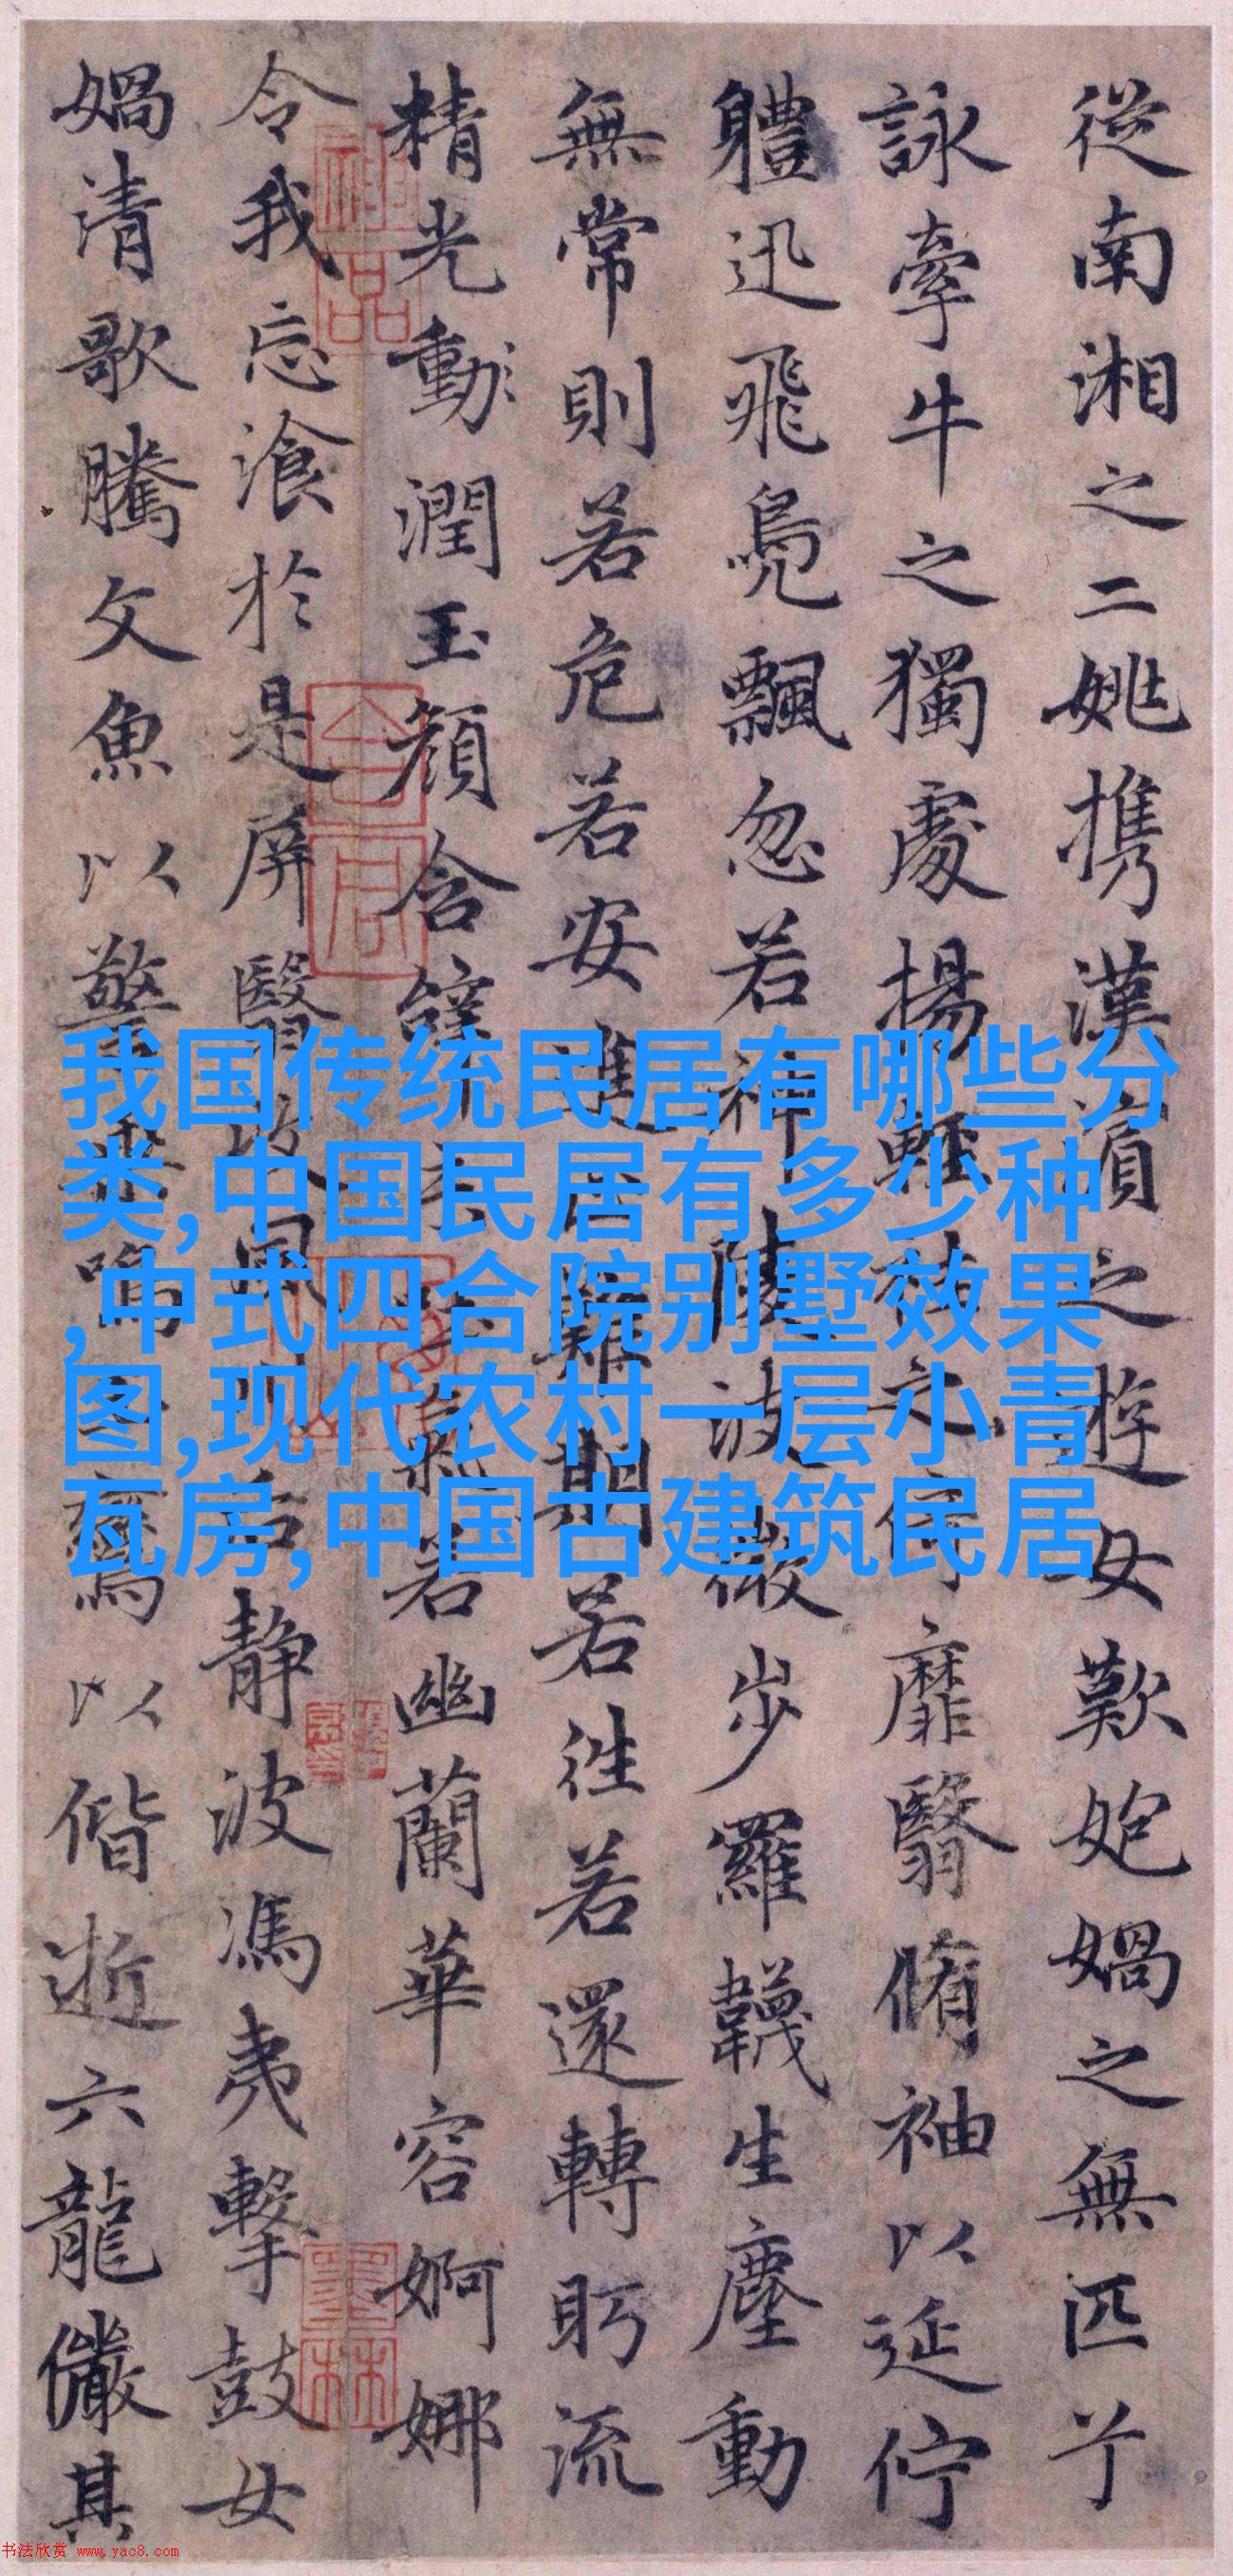 從南湘之二姚携漢濱之遊女歎媧之無匹兮
詠牽牛之獨處揚輕袿之猗靡翳脩袖以延佇
軆迅飛鳧飄忽若神陵波微步羅韈生塵動
無常則若危若安進止難期若往若還轉眄流
精光動潤玉顏含辭未吐氣若幽蘭華容婀娜
令我忘飡於是屏翳收風川后靜波馮夷擊鼓女
媧清歌騰文魚以警乘鳴玉鸞以偕逝六龍儼其
我国传统民居有哪些分
类,中国民居有多少种
,中式四合院别墅效果
图,现代农村一层小青
瓦房,中国古建筑民居
神品
墨林
书法欣赏 www.yac8.com